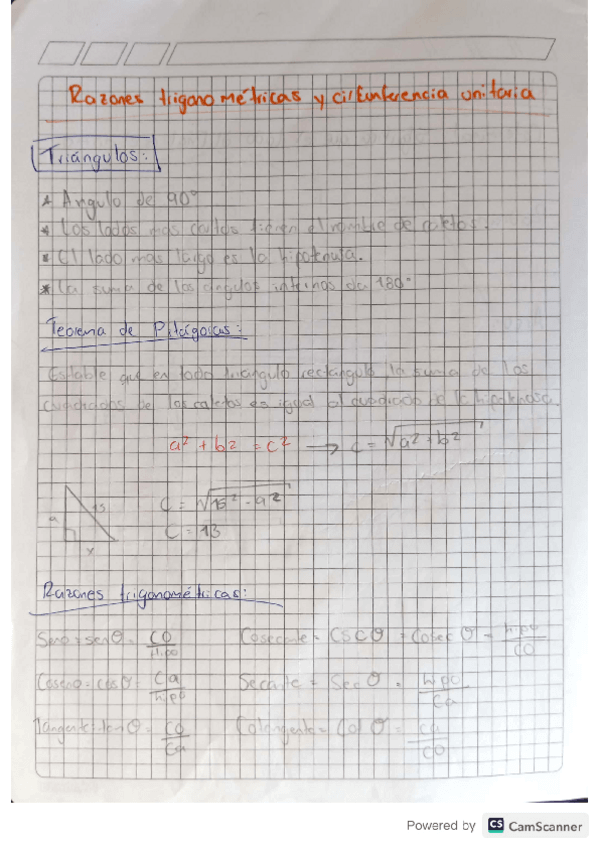 Razones trigonométricas y circunferencia unitaria
Triángulos:
* Angulo de 90°
* Los lados mas cortos tienen el nombre de catetos.
* El lado mas largo es la hipotenusa.
* La suma de los angulos internos da 180°
Teorema de Pitágoras:
Estable que en todo triangulo rectangulo, la suma de los
cuadrados de los catetos es igual al cuadrado de la hipotenusa.
a² + b² = c² → c = √a² + b²
15
x
C = √15² - 9²
C = 13
Razones trigonométricas:
Seno = senθ = CO/Hipo Cosecante = CSCθ = Cosec θ = hipo/CO
Coseno = cosθ = Ca/hipo Secante = Sec θ = hipo/Ca
Tangente = tan θ = CO/Ca Cotangente = Cot θ = ca/co
Powered by CS CamScanner